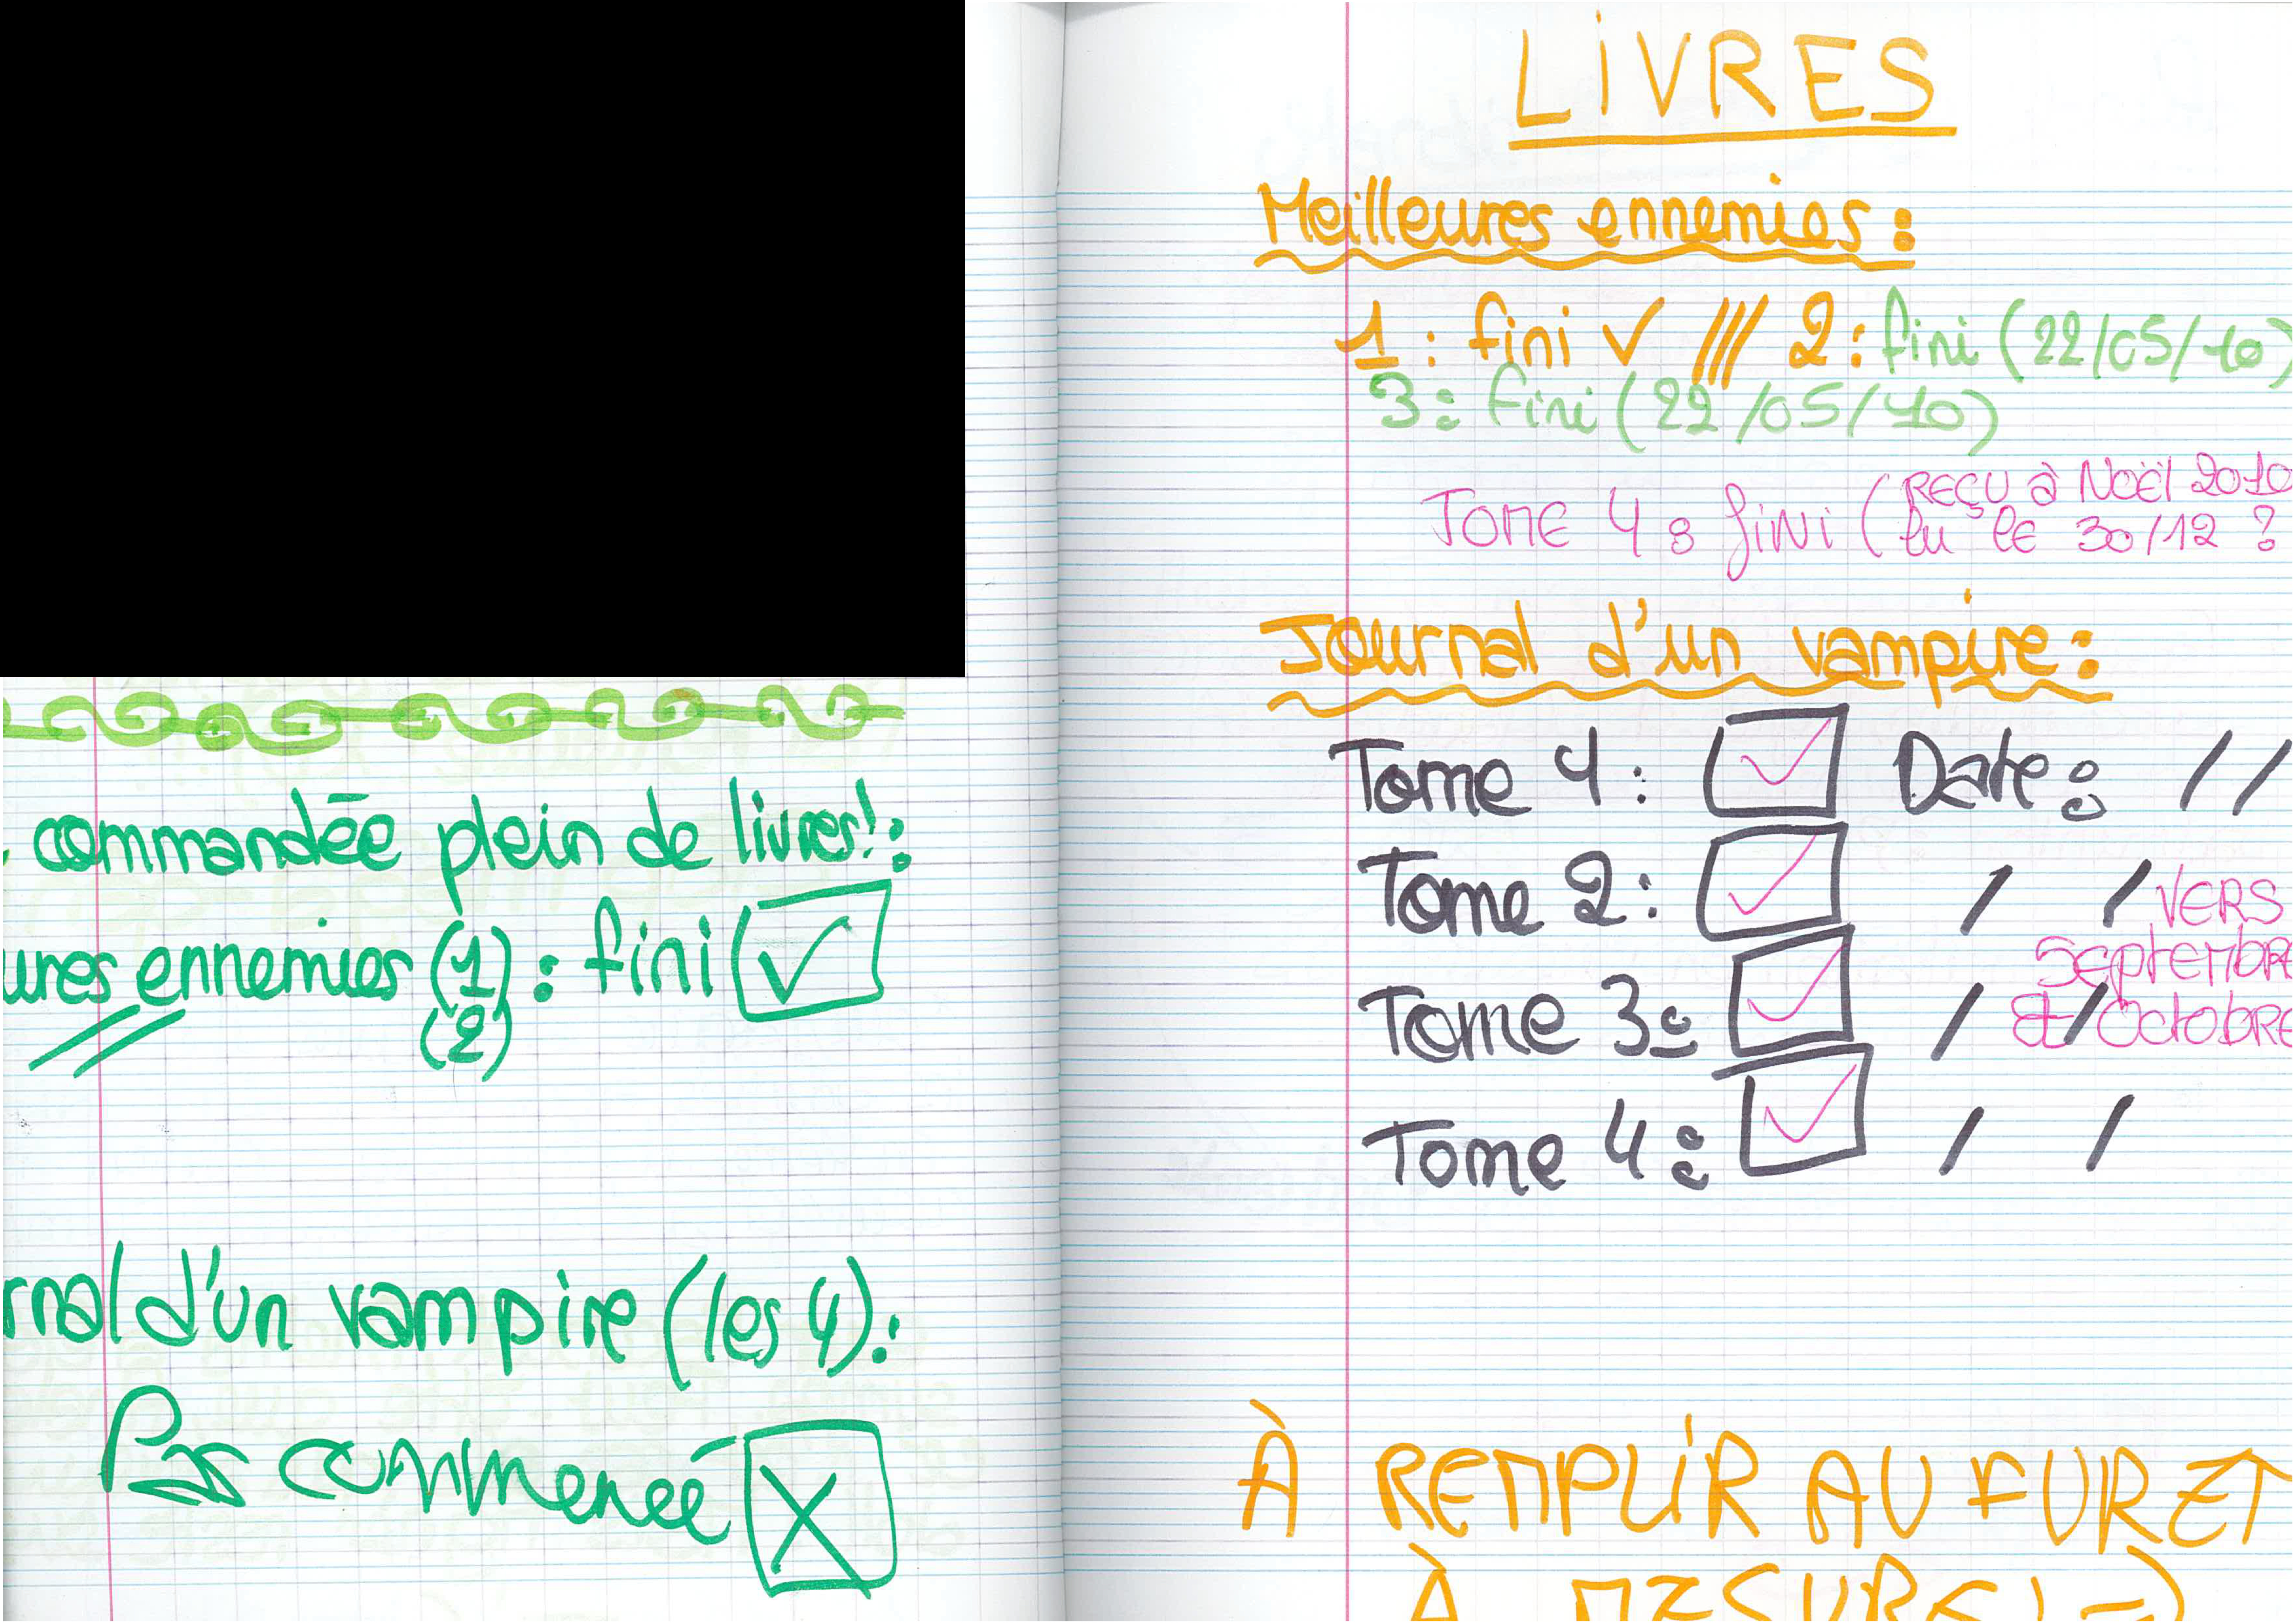 commandée plein de livres! :
ures ennemies (1) : fini ✓
(2)
rnal d'un vampire (les 4) :
Pas commencé X
LIVRES
Meilleures ennemies :
1 : fini ✓ /// 2 : fini (22/05/10)
3 : fini (22/05/10)
TOME 4 : fini (REÇU à Noël 2010
lu le 30/12 ?
Journal d'un vampire :
Tome 1 : ✓ Date : / /
Tome 2 : ✓ / / VERS
Septembre
Tome 3 : ✓ / / et Octobre
Tome 4 : ✓ / /
À REMPLIR AU FUR ET
À MESURE! =)